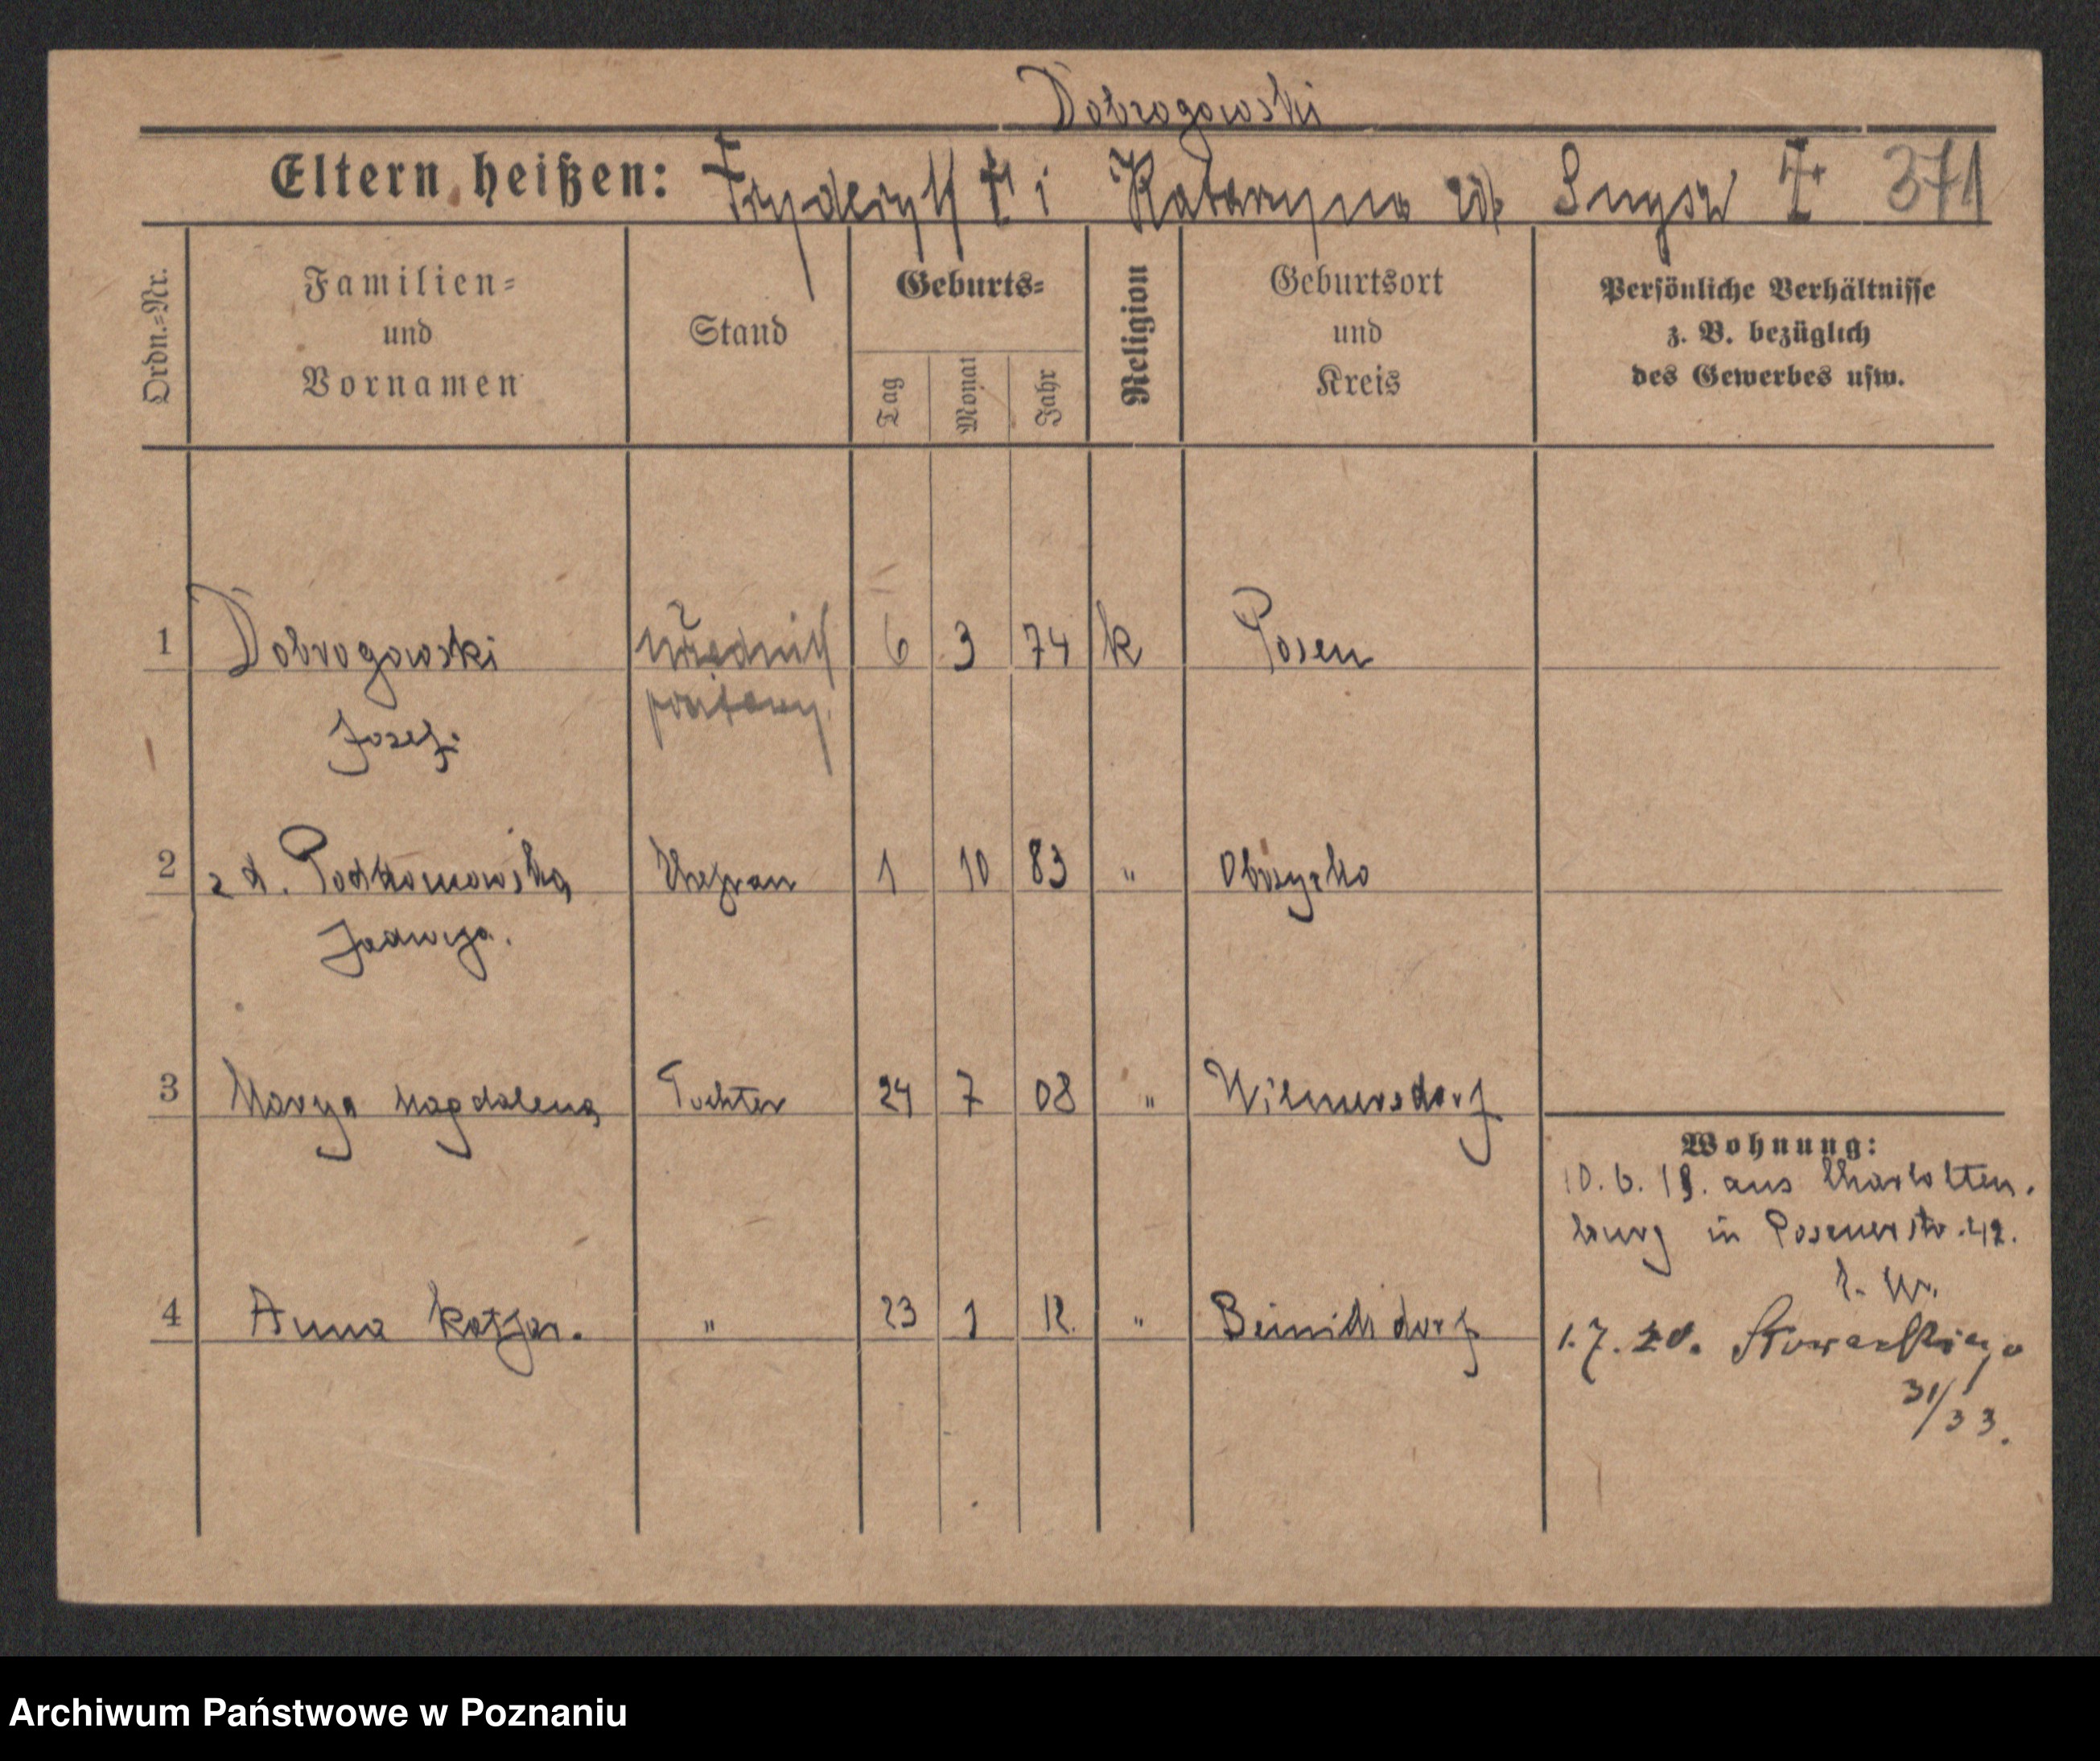 Dobrogowski
Eltern heißen: Fryderyk † i Katarzyna † 371
Ordn.-Nr.
Familien-
und
Vornamen
Stand
Geburts-
Tag
Monat
Jahr
Religion
Geburtsort
und
Kreis
Persönliche Verhältnisse
z. B. bezüglich
des Gewerbes usw.
1 Dobrogowski urzędnik 6 3 74 k Posen
Josef. pocztowy
2 Podkomowska Ehefrau 1 10 83 " Obrzycko
Jadwiga.
3 Marya Magdalena Tochter 24 7 08 " Wilmersdorf
Wohnung:
10. 6. 19. aus Charlotten-
burg in Posenerstr. 42.
4 Anna Kathar. " 23 1 12 "
1. 7. 20. Słowackiego
31/33.
Archiwum Państwowe w Poznaniu